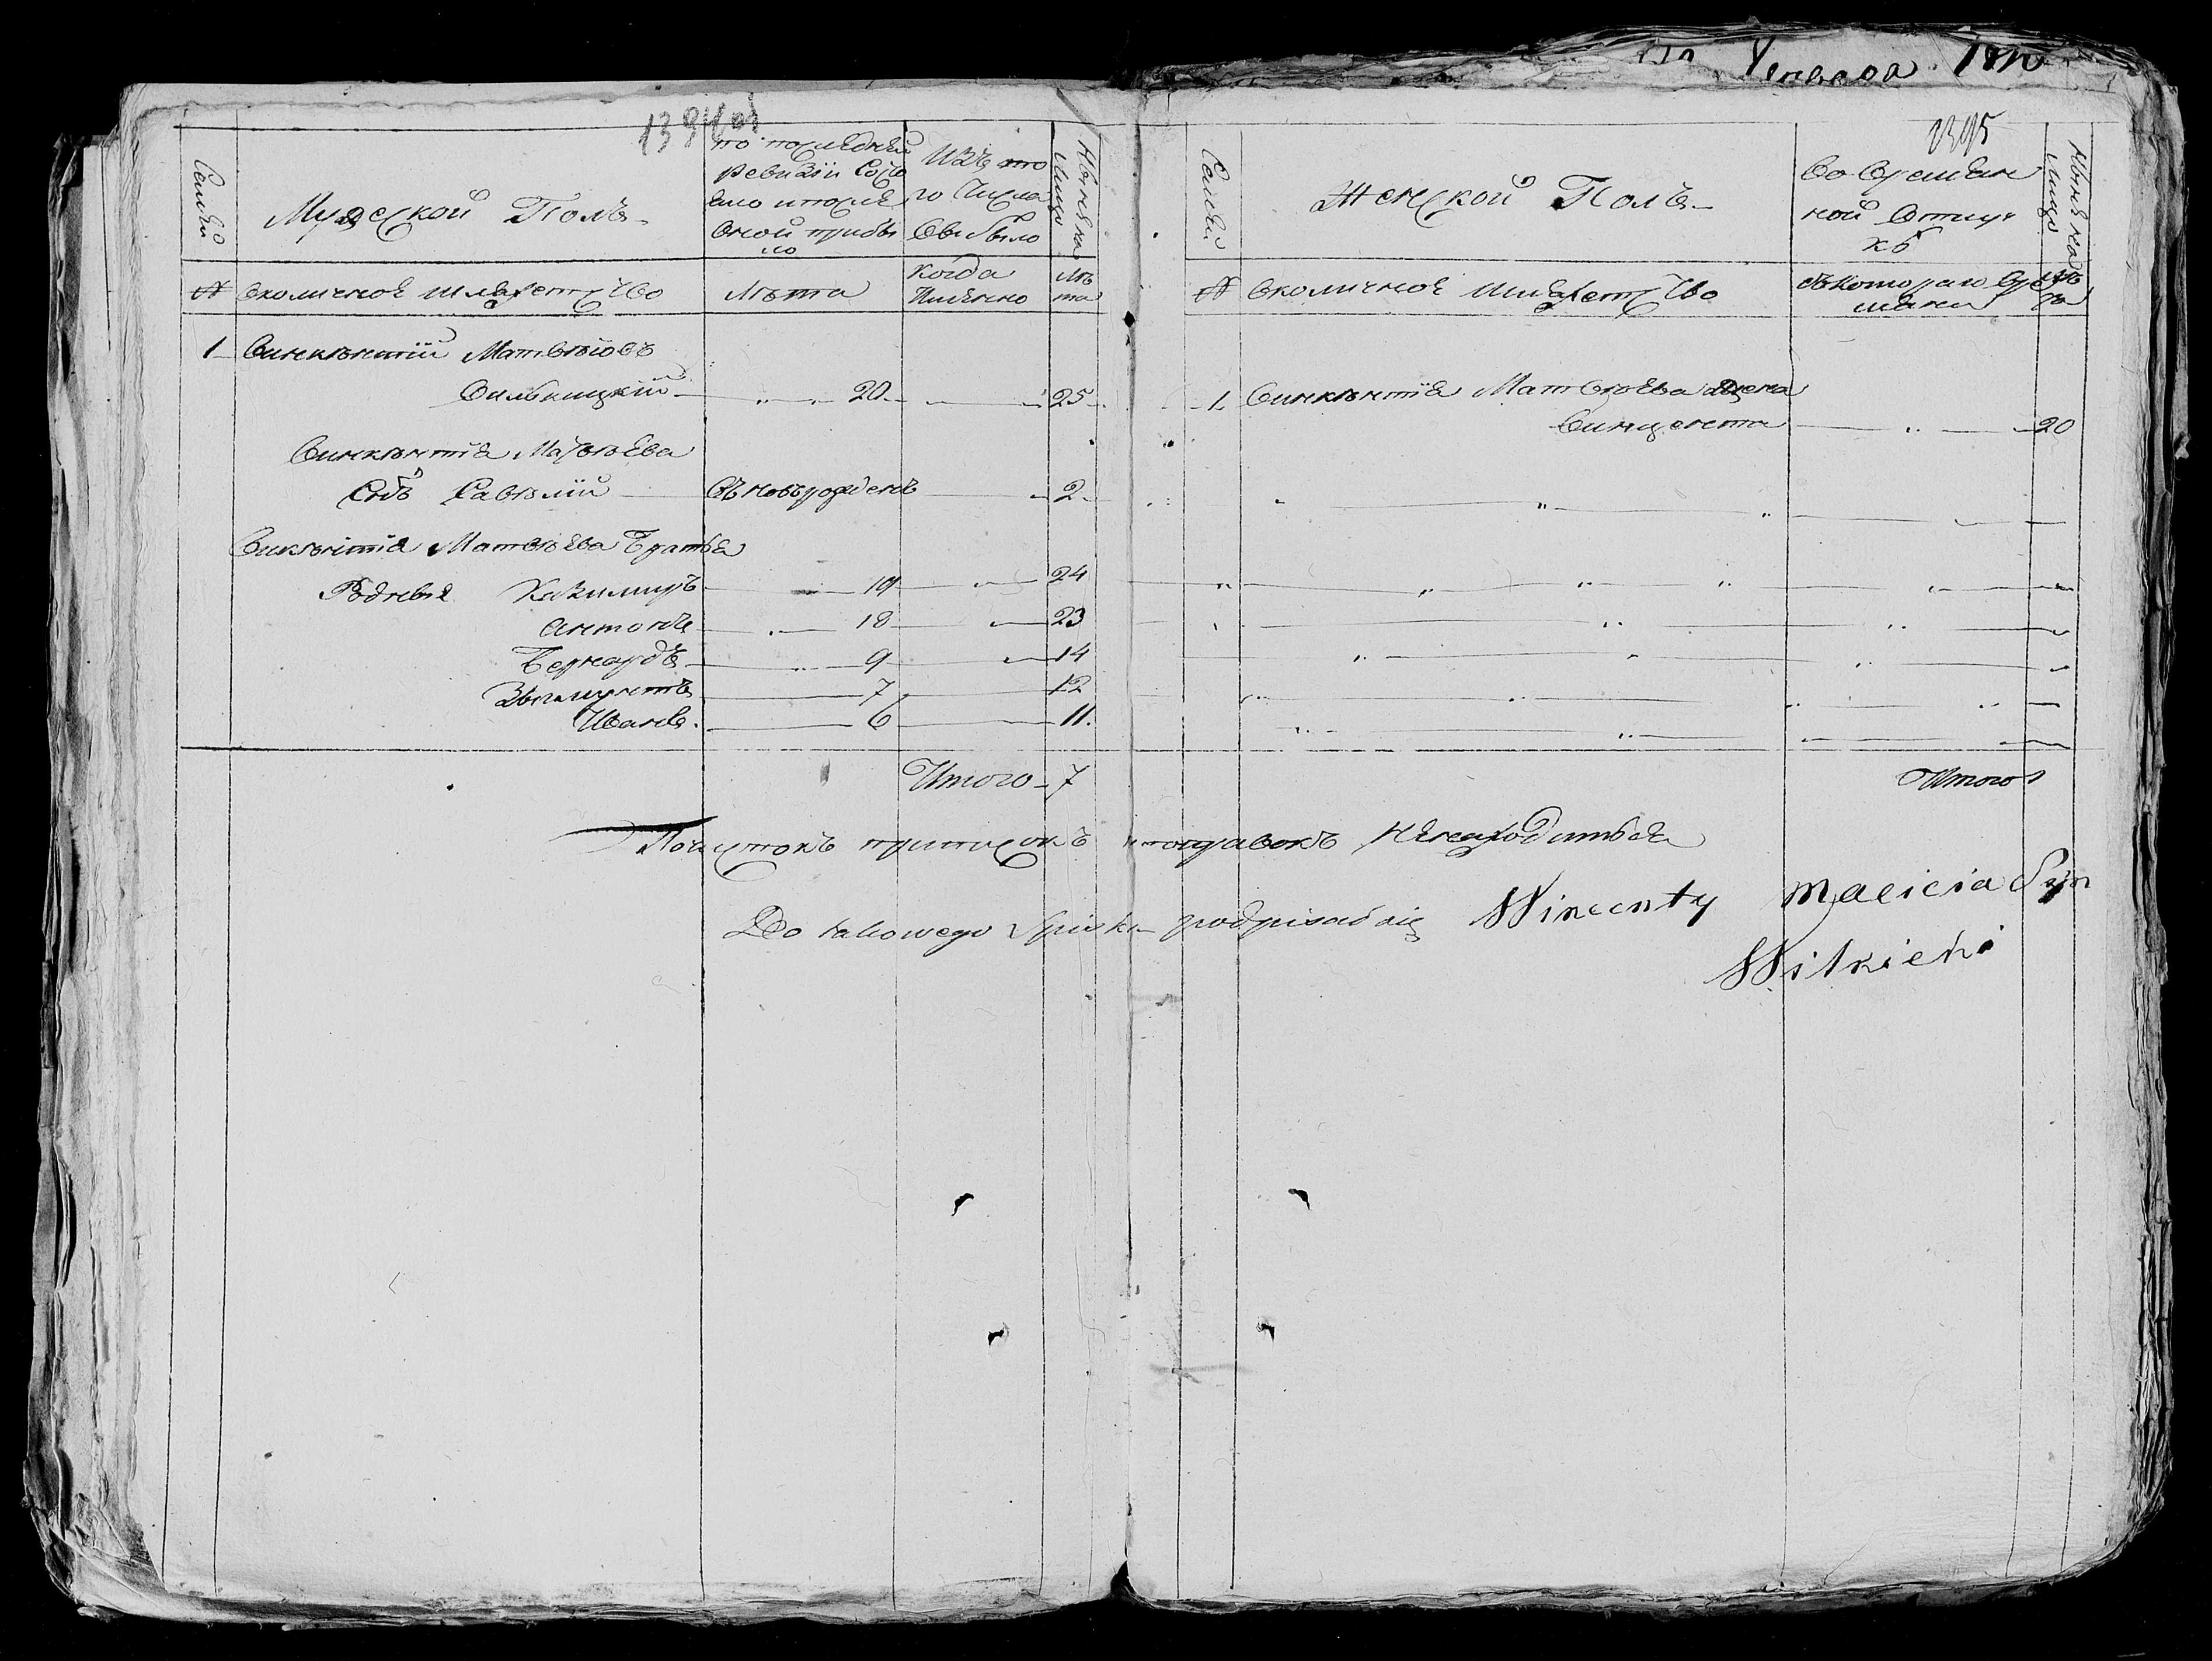 1394об
Семьи
Мужеской Полъ
по последней
Ревизіи Состо
яло и после
оной прибы
ло
Изъ то
го Числа
Выбыло
Ныне на
лицо
№
Околичное Шляхетство
Лѣта
Когда
Имянно
Лѣ
та
1 Винкентій Матвѣіовъ
Вилькицкій 20 25
Винкентія Матвѣева
Сынъ Савѣлій Въ новърожденъ 2
Винкентія Матвѣева Братья
Родные Казимиръ 19 24
Антонъ 18 23
Бернардъ 9 14
Зыгмунтъ 7 12
Иванъ 6 11
Итого 7
1395
Семьи
Женской Полъ
Во Времян
ной Отлуч
кѣ
Ныне на
лицо
№
Околичное Шляхетство
съ Котораго Вре
мяни
Лѣ
та
1 Винкентія Матвѣева Жена
Винцента 20
Итого 1
Почистокъ приписокъ и поправокъ ненаходитьса
Do takowego Spisku podpisał się Wincenty Macieia Syn
Wilkicki